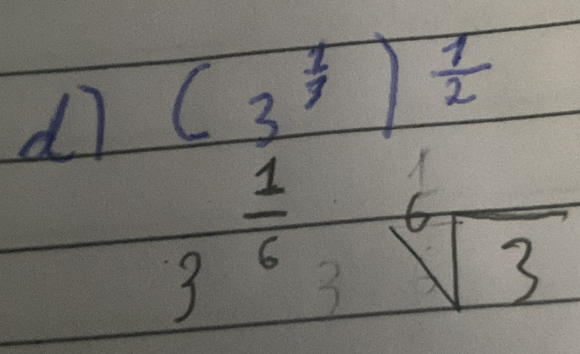 d) (3^{1/3})^{1/2}
3^{1/6} ⁶√3